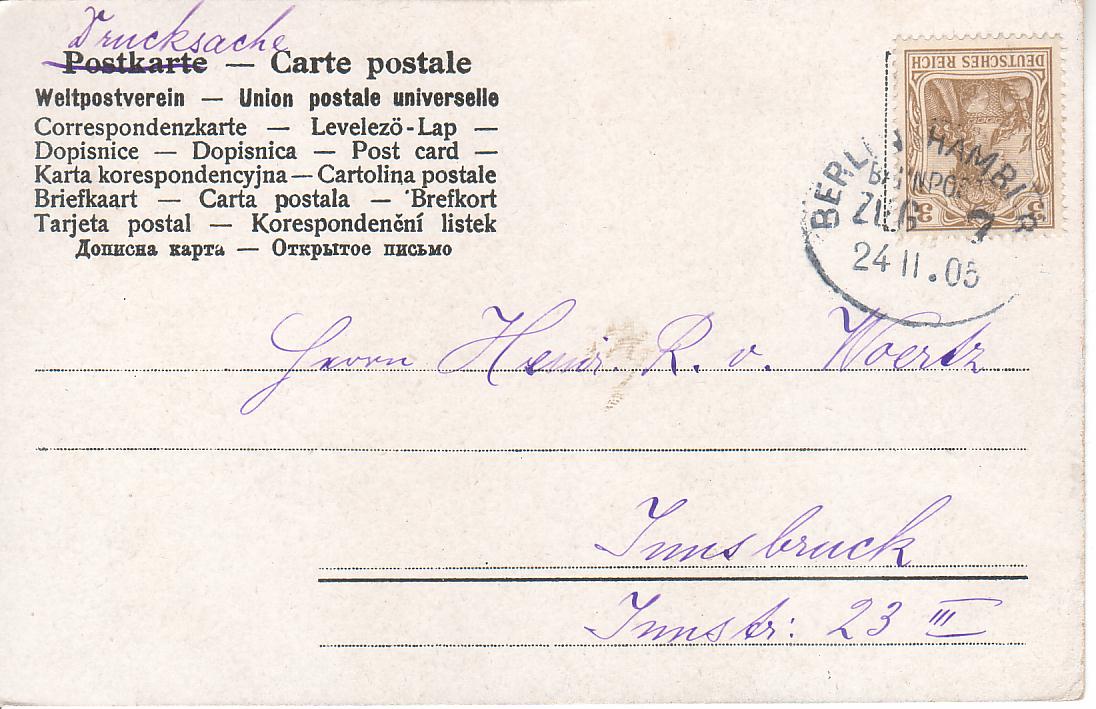 Drucksache
Postkarte — Carte postale
Weltpostverein — Union postale universelle
Correspondenzkarte — Levelező-Lap —
Dopisnice — Dopisnica — Post card —
Karta korespondencyjna — Cartolina postale
Briefkaart — Carta postala — Brefkort
Tarjeta postal — Korespondenční listek
Дописна карта — Открытое письмо
DEUTSCHES REICH
3 3
BERLIN HAMBURG
BAHNPOST
ZUG 7
24 11.05
Herrn Heinr. R. v. Woertz
Innsbruck
Innstr: 23 III